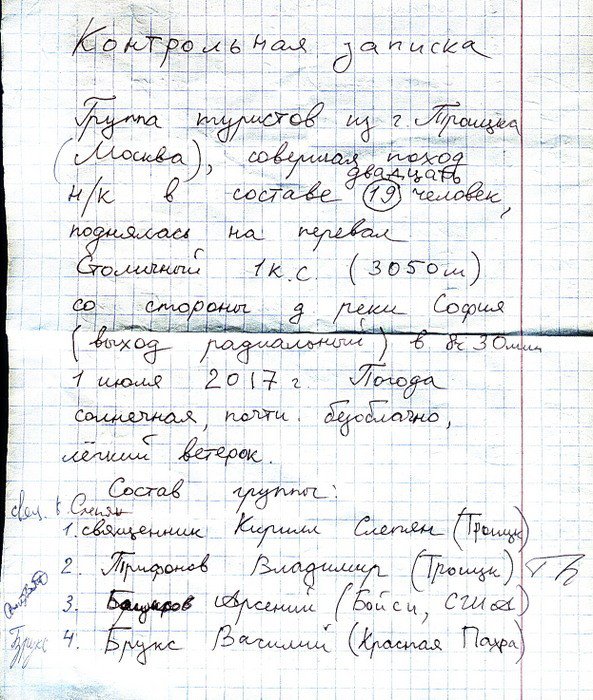 Контрольная записка
Группа туристов из г. Троицка
(Москва), совершая поход
двадцать
н/к в составе 19 человек,
поднялась на перевал
Столичный 1к.с. (3050м)
со стороны д реки София
(выход радиальный) в 8ч 30мин
1 июля 2017 г. Погода
солнечная, почти безоблачно,
лёгкий ветерок.
Состав группы:
свящ. К Слепян
1. священник Кирилл Слепян (Троицк)
2. Трифонов Владимир (Троицк)
3. Арсений (Бойси, США)
Брукс 4. Брукс Василий (Красная Пахра)